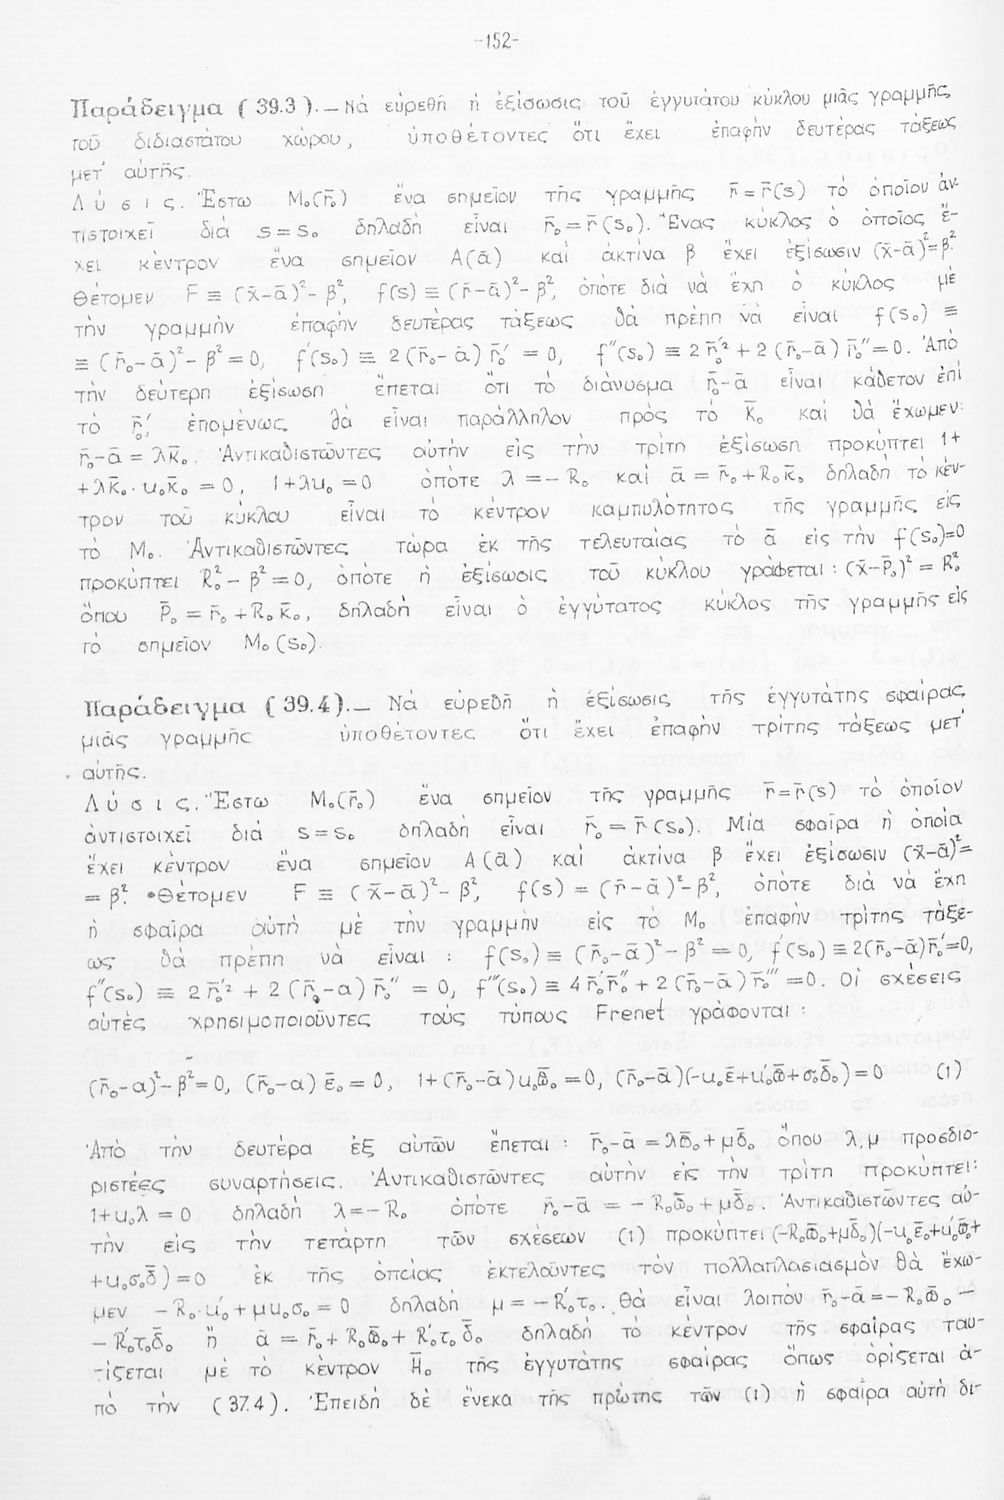 -152-
Παράδειγμα ( 39.3 ).— Νὰ εὑρεθῆ ἡ ἐξίσωσις τοῦ ἐγγυτάτου κύκλου μιᾶς γραμμῆς
τοῦ διδιαστάτου χώρου, ὑποθέτοντες ὅτι ἔχει ἐπαφὴν δευτέρας τάξεως
μετ' αὐτῆς.
Λ ύ σ ι ς . Ἔστω Μ₀(r̄₀) ἕνα σημεῖον τῆς γραμμῆς r̄ = r̄(s) τὸ ὁποῖον ἀν-
τιστοιχεῖ διά s = s₀ δηλαδὴ εἶναι r̄₀ = r̄(s₀). Ἕνας κύκλος ὁ ὁποῖος ἔ-
χει κέντρον ἕνα σημεῖον Α(ᾱ) καὶ ἀκτίνα β ἔχει ἐξίσωσιν (x̄-ᾱ)²=β².
Θέτομεν F ≡ (x̄-ᾱ)²- β², f(s) ≡ (r̄-ᾱ)²- β², ὁπότε διὰ νὰ ἔχη ὁ κύκλος μὲ
τὴν γραμμὴν ἐπαφὴν δευτέρας τάξεως θὰ πρέπη νὰ εἶναι f(s₀) ≡
≡ (r̄₀-ᾱ)²- β² = 0, f'(s₀) ≡ 2(r̄₀-ᾱ) r̄₀' = 0, f''(s₀) ≡ 2 r̄₀'² + 2 (r̄₀-ᾱ) r̄₀'' = 0. Ἀπὸ
τὴν δεύτερη ἐξίσωση ἕπεται ὅτι τὸ διάνυσμα r̄₀-ᾱ εἶναι κάθετον ἐπὶ
τὸ r̄₀', ἐπομένως θὰ εἶναι παράλληλον πρὸς τὸ K̄₀ καὶ θὰ ἔχωμεν:
r̄₀-ᾱ = λK̄₀. Ἀντικαθιστῶντες αὐτὴν εἰς τὴν τρίτη ἐξίσωση προκύπτει 1+
+λK̄₀·u₀K̄₀ = 0, 1+λu₀ = 0 ὁπότε λ = - R₀ καὶ ᾱ = r̄₀ + R₀K̄₀ δηλαδὴ τὸ κέν-
τρον τοῦ κύκλου εἶναι τὸ κέντρον καμπυλότητος τῆς γραμμῆς εἰς
τὸ Μ₀. Ἀντικαθιστῶντες τώρα ἐκ τῆς τελευταίας τὸ ᾱ εἰς τὴν f(s₀)=0
προκύπτει R₀² - β² = 0, ὁπότε ἡ ἐξίσωσις τοῦ κύκλου γράφεται : (x̄-P̄₀)² = R₀²
ὅπου P̄₀ = r̄₀ + R₀K̄₀, δηλαδὴ εἶναι ὁ ἐγγύτατος κύκλος τῆς γραμμῆς εἰς
τὸ σημεῖον Μ₀(s₀).
Παράδειγμα ( 39.4 ).— Νὰ εὑρεθῆ ἡ ἐξίσωσις τῆς ἐγγυτάτης σφαίρας
μιᾶς γραμμῆς ὑποθέτοντες ὅτι ἔχει ἐπαφὴν τρίτης τάξεως μετ'
αὐτῆς.
Λ ύ σ ι ς . Ἔστω Μ₀(r̄₀) ἕνα σημεῖον τῆς γραμμῆς r̄=r̄(s) τὸ ὁποῖον
ἀντιστοιχεῖ διά s = s₀ δηλαδὴ εἶναι r̄₀ = r̄(s₀). Μία σφαῖρα ἡ ὁποία
ἔχει κέντρον ἕνα σημεῖον Α(ᾱ) καὶ ἀκτίνα β ἔχει ἐξίσωσιν (x̄-ᾱ)²=
= β². Θέτομεν F ≡ (x̄-ᾱ)²- β², f(s) = (r̄-ᾱ)²- β², ὁπότε διὰ νὰ ἔχη
ἡ σφαῖρα αὐτὴ μὲ τὴν γραμμὴν εἰς τὸ Μ₀ ἐπαφὴν τρίτης τάξε-
ως θὰ πρέπη νὰ εἶναι : f(s₀) ≡ (r̄₀-ᾱ)²- β² = 0, f'(s₀) ≡ 2(r̄₀-ᾱ)r̄₀'=0,
f''(s₀) ≡ 2 r̄₀'² + 2 (r̄₀-α) r̄₀'' = 0, f'''(s₀) ≡ 4 r̄₀'r̄₀'' + 2 (r̄₀-ᾱ) r̄₀''' = 0. Οἱ σχέσεις
αὐτὲς χρησιμοποιοῦντες τοὺς τύπους Frenet γράφονται :
(r̄₀-α)²-β²= 0, (r̄₀-α) ε̄₀ = 0, 1+(r̄₀-ᾱ)u₀ω̄₀ = 0, (r̄₀-ᾱ)(-u₀ε̄+u₀'ω̄+σ₀δ̄₀) = 0 (1)
Ἀπὸ τὴν δευτέρα ἐξ αὐτῶν ἕπεται : r̄₀-ᾱ = λω̄₀ + μδ̄₀ ὅπου λ, μ προσδιο-
ριστέες συναρτήσεις. Ἀντικαθιστῶντες αὐτὴν εἰς τὴν τρίτη προκύπτει:
1+u₀λ = 0 δηλαδὴ λ = - R₀ ὁπότε r̄₀-ᾱ = - R₀ω̄₀ + μδ̄₀. Ἀντικαθιστῶντες αὐ-
τὴν εἰς τὴν τετάρτη τῶν σχέσεων (1) προκύπτει (-R₀ω̄₀+μδ̄₀)(-u₀ε̄₀+u₀'ω̄₀+
+u₀σ₀δ̄) = 0 ἐκ τῆς ὁποίας ἐκτελοῦντες τὸν πολλαπλασιασμὸν θὰ ἔχω-
μεν - R₀·u₀' + μu₀σ₀ = 0 δηλαδὴ μ = - R₀'τ₀. Θὰ εἶναι λοιπὸν r̄₀-ᾱ = - R₀ω̄₀ -
- R₀'τ₀δ̄₀ ἢ ᾱ = r̄₀ + R₀ω̄₀ + R₀'τ₀δ̄₀ δηλαδὴ τὸ κέντρον τῆς σφαίρας ταυ-
τίζεται μὲ τὸ κέντρον H̄₀ τῆς ἐγγυτάτης σφαίρας ὅπως ὁρίζεται ἀ-
πὸ τὴν (37.4). Ἐπειδὴ δὲ ἕνεκα τῆς πρώτης τῶν (1) ἡ σφαῖρα αὐτὴ δι-